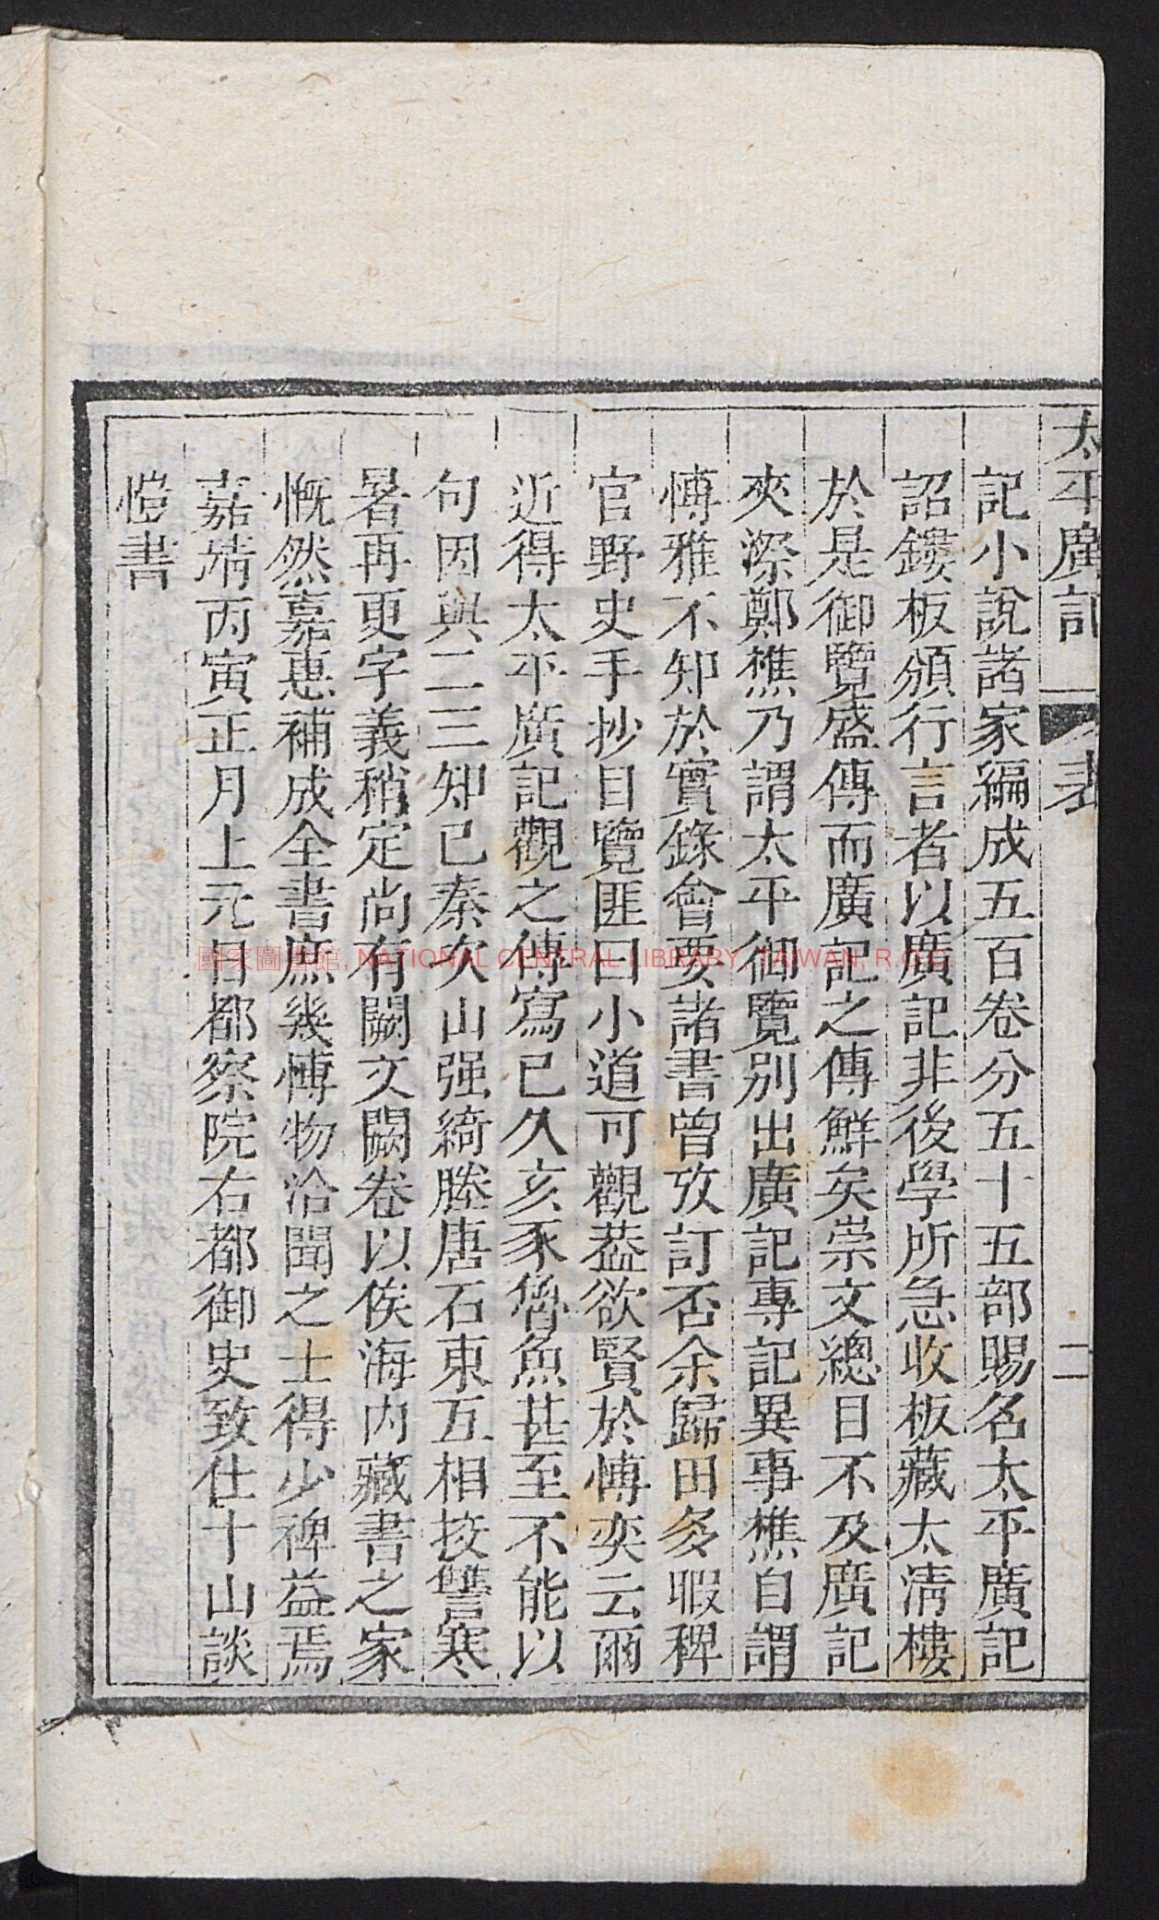 太平廣記
表
二
記小說諸家編成五百卷分五十五部賜名太平廣記
詔鏤板頒行言者以廣記非後學所急收板藏太清樓
於是御覽盛傳而廣記之傳鮮矣崇文總目不及廣記
夾漈鄭樵乃謂太平御覽别出廣記專記異事樵自謂
愽雅不知於實錄會要諸書曾攷訂否余歸田多暇稗
官野史手抄目覽匪曰小道可觀葢欲賢於愽奕云爾
近得太平廣記觀之傳寫已久亥豕魯魚甚至不能以
句因與二三知己秦次山强綺塍唐石東互相挍讐寒
暑再更字義稍定尚有闕文闕卷以俟海内藏書之家
慨然嘉惠補成全書庶幾愽物洽聞之士得少裨益焉
嘉靖丙寅正月上元日都察院右都御史致仕十山談
愷書
國家圖書館, NATIONAL CENTRAL LIBRARY, TAIWAN, R.O.C